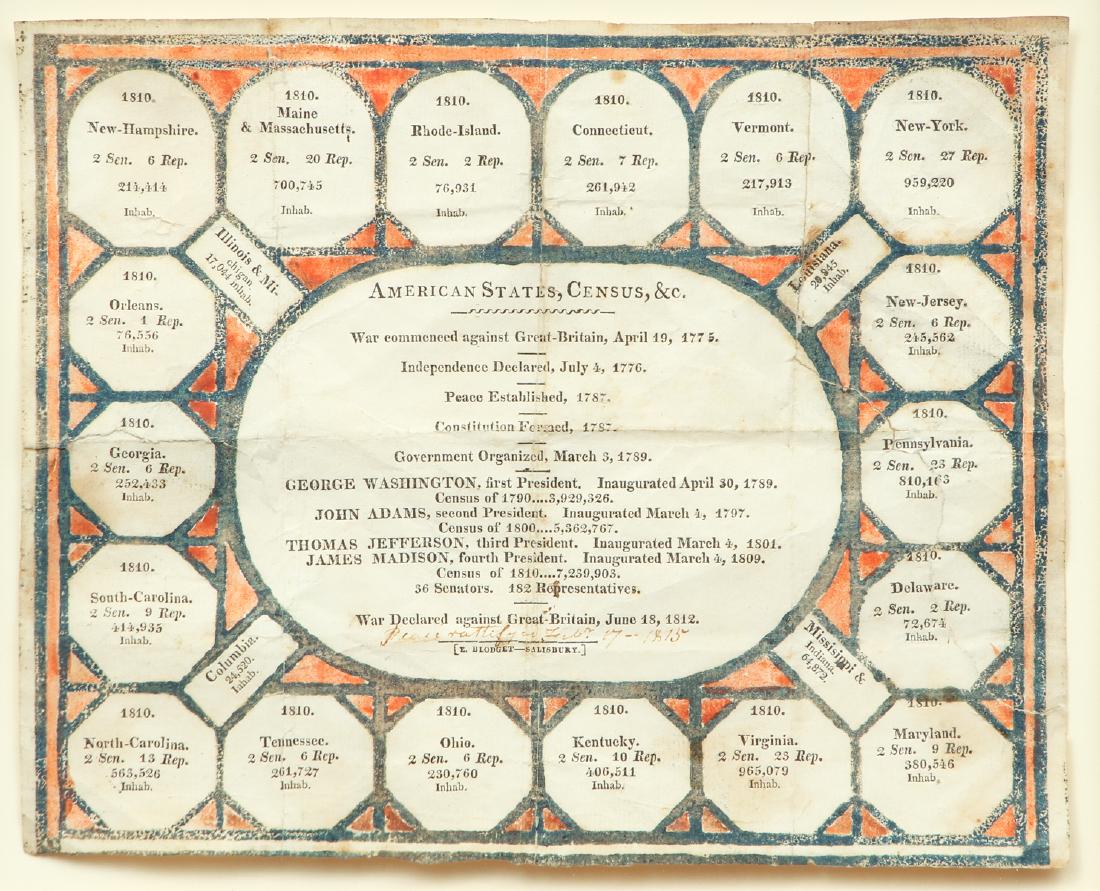 1810.
New-Hampshire.
2 Sen. 6 Rep.
214,414
Inhab.
1810.
Maine
& Massachusetts.
2 Sen. 20 Rep.
700,745
Inhab.
1810.
Rhode-Island.
2 Sen. 2 Rep.
76,931
Inhab.
1810.
Connecticut.
2 Sen. 7 Rep.
261,942
Inhab.
1810.
Vermont.
2 Sen. 6 Rep.
217,913
Inhab.
1810.
New-York.
2 Sen. 27 Rep.
959,220
Inhab.
Illinois & Mi-
chigan
17,044 inhab.
Louisiana.
20,845
Inhab.
1810.
Orleans.
2 Sen. 1 Rep.
76,556
Inhab.
1810.
New-Jersey.
2 Sen. 6 Rep.
245,562
Inhab.
1810.
Georgia.
2 Sen. 6 Rep.
252,433
Inhab.
1810.
Pennsylvania.
2 Sen. 23 Rep.
810,163
Inhab.
1810.
South-Carolina.
2 Sen. 9 Rep.
414,935
Inhab.
1810.
Delaware.
2 Sen. 2 Rep.
72,674
Inhab.
AMERICAN STATES, CENSUS, &c.
War commenced against Great-Britain, April 19, 1775.
Independence Declared, July 4, 1776.
Peace Established, 1787.
Constitution Formed, 1787.
Government Organized, March 3, 1789.
GEORGE WASHINGTON, first President. Inaugurated April 30, 1789.
Census of 1790....3,929,326.
JOHN ADAMS, second President. Inaugurated March 4, 1797.
Census of 1800....5,362,767.
THOMAS JEFFERSON, third President. Inaugurated March 4, 1801.
JAMES MADISON, fourth President. Inaugurated March 4, 1809.
Census of 1810....7,239,903.
36 Senators. 182 Representatives.
War Declared against Great-Britain, June 18, 1812.
Peace ratifyed Febr 17 - 1815
[E. BLODGET—SALISBURY.]
Columbia.
24,520.
Inhab.
Mississippi &
Indiana.
64,872.
1810.
North-Carolina.
2 Sen. 13 Rep.
563,526
Inhab.
1810.
Tennessee.
2 Sen. 6 Rep.
261,727
Inhab.
1810.
Ohio.
2 Sen. 6 Rep.
230,760
Inhab.
1810.
Kentucky.
2 Sen. 10 Rep.
406,511
Inhab.
1810.
Virginia.
2 Sen. 23 Rep.
965,079
Inhab.
1810.
Maryland.
2 Sen. 9 Rep.
380,546
Inhab.